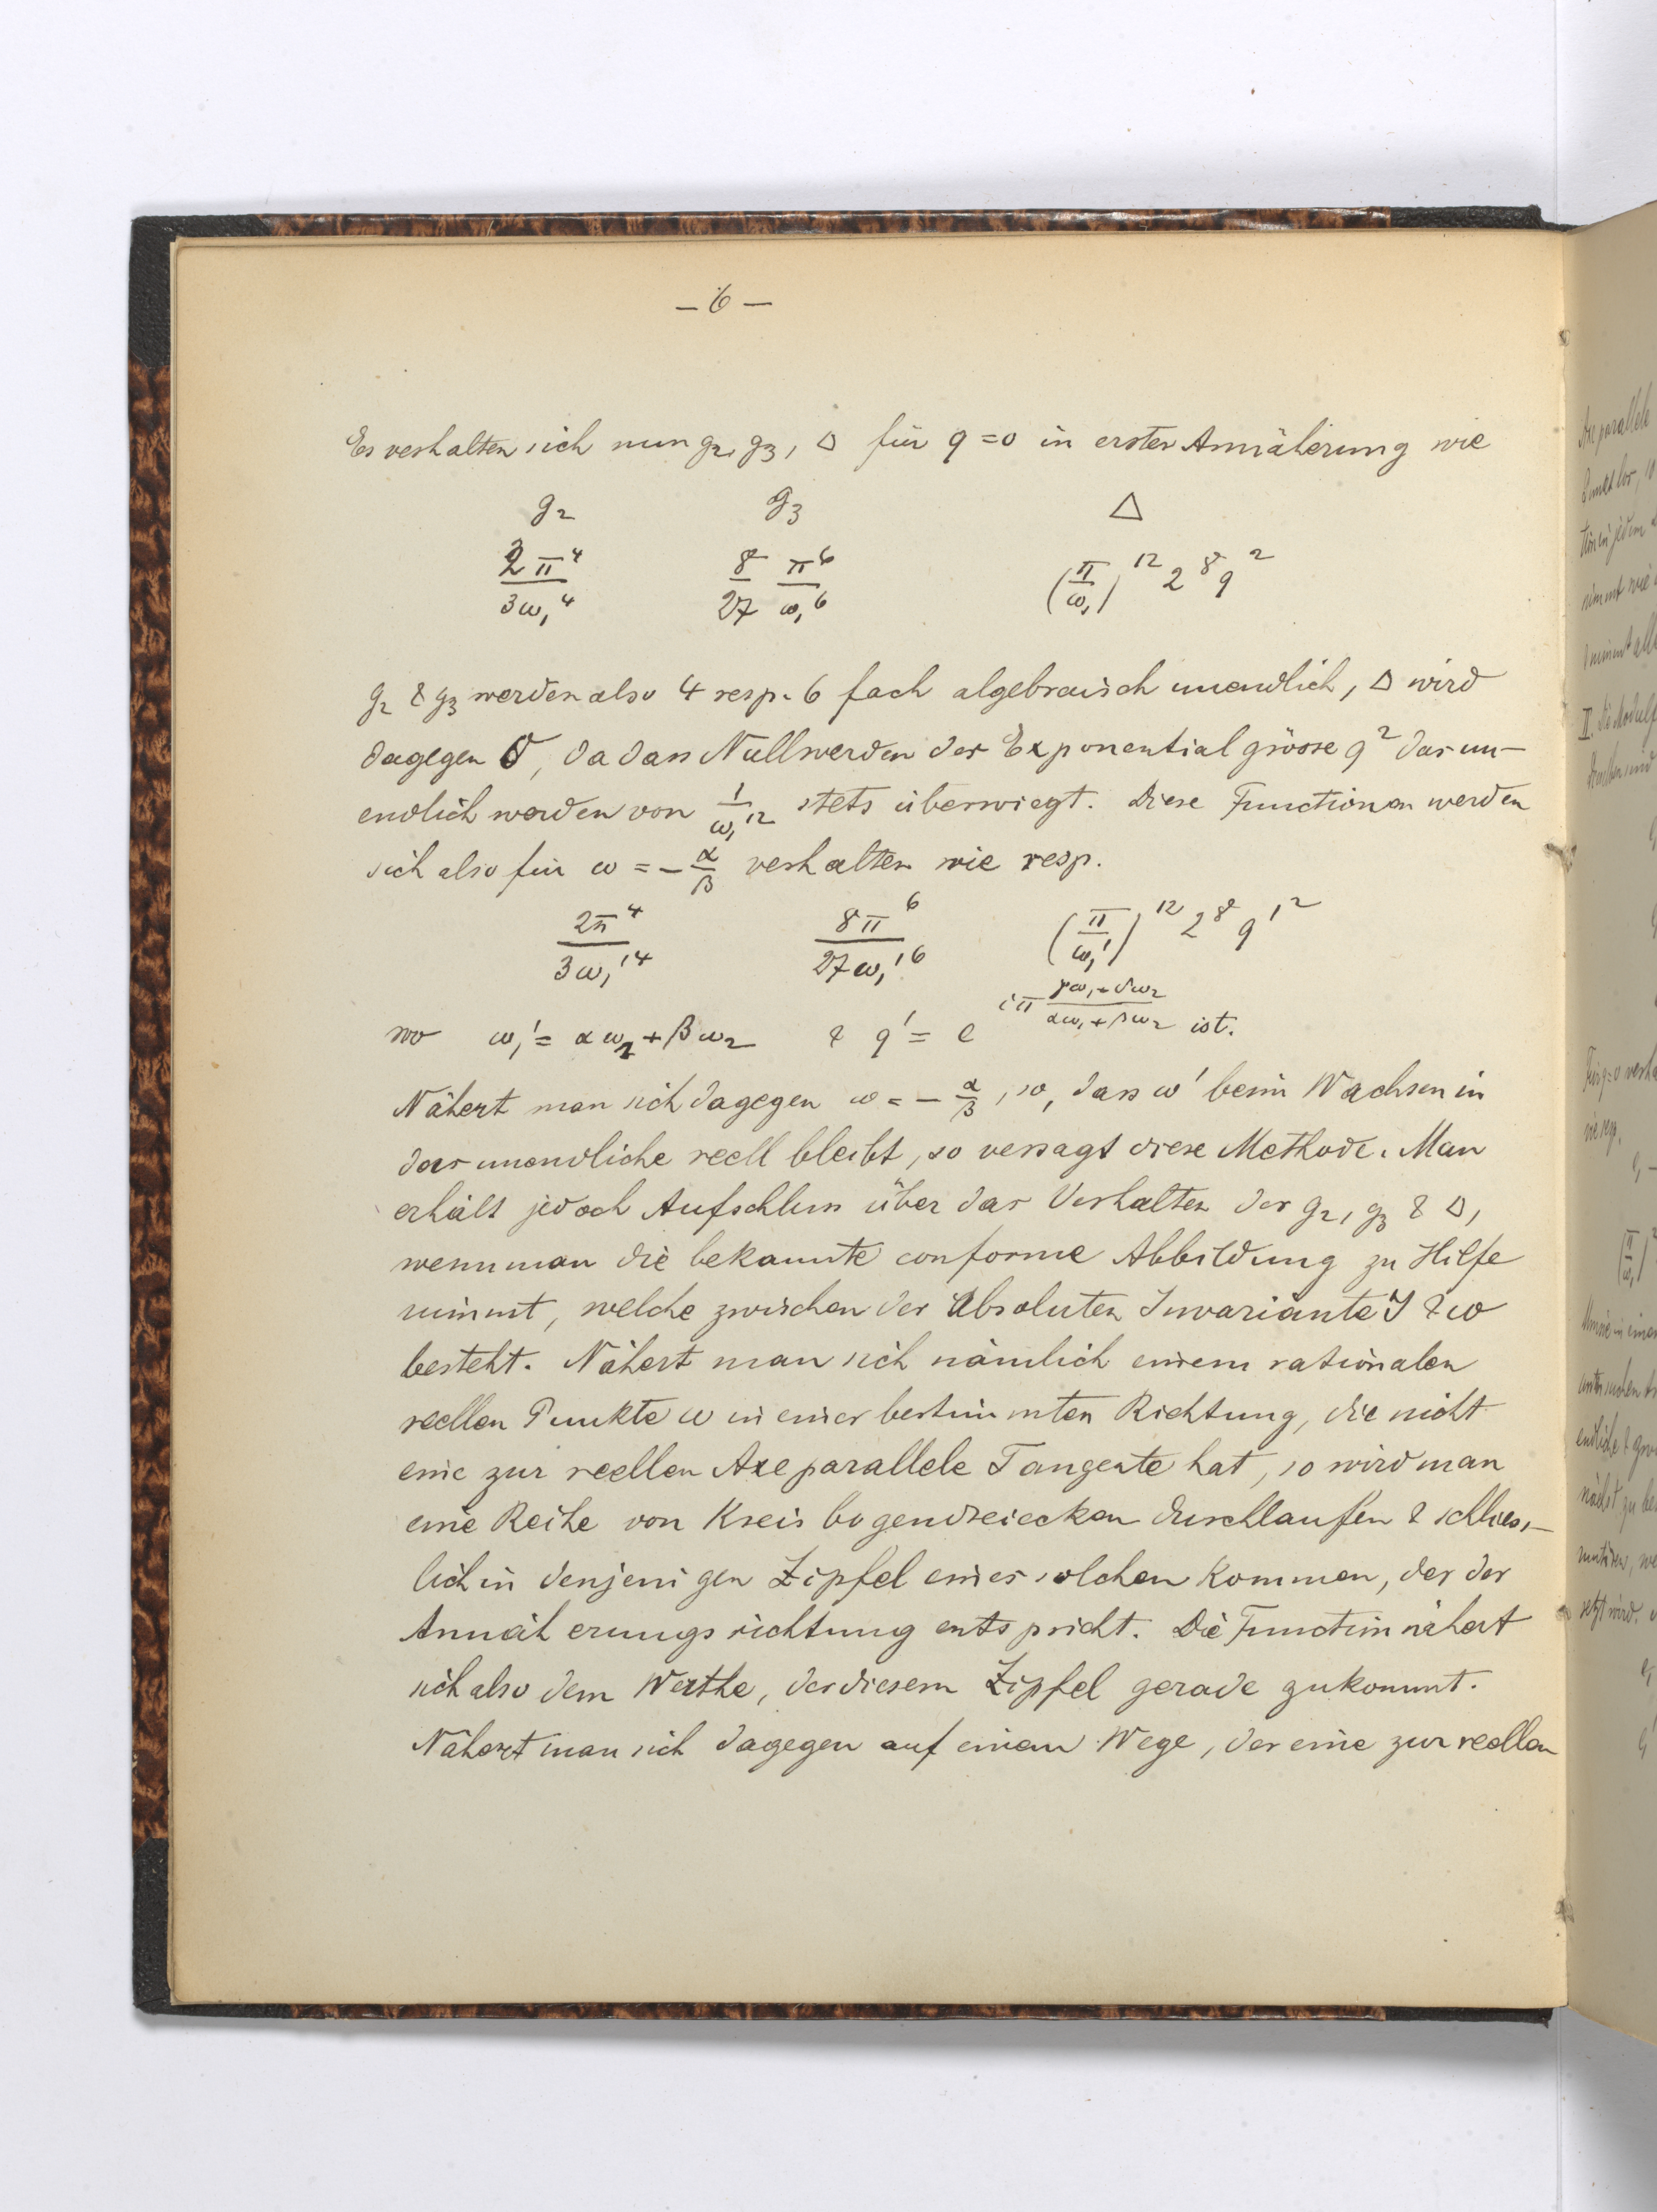 — 6 —
Es verhalten sich nun g₂, g₃, Δ für q = 0 in erster Annäherung wie
g₂ g₃ Δ
2π⁴/3ω₁⁴ 8/27 π⁶/ω₁⁶ (π/ω₁)¹² 2⁸ q²
g₂ & g₃ werden also 4 resp. 6 fach algebraisch unendlich, Δ wird
dagegen 0, da das Nullwerden der Exponentialgrösse q² das un-
endlich werden von 1/ω₁¹² stets überwiegt. Diese Functionen werden
sich also für ω = - α/β verhalten wie resp.
2π⁴/3ω₁'⁴ 8π⁶/27ω₁'⁶ (π/ω₁')¹² 2⁸ q'²
wo ω₁' = αω₁ + βω₂ & q' = e^{iπ (γω₁+δω₂)/(αω₁+βω₂)} ist.
Nähert man sich dagegen ω = - α/β, so, dass ω' beim Wachsen in
das unendliche reell bleibt, so versagt diese Methode. Man
erhält jedoch Aufschluss über das Verhalten der g₂, g₃ & Δ,
wenn man die bekannte conforme Abbildung zu Hilfe
nimmt, welche zwischen der Absoluten Invariante J & ω
besteht. Nähert man sich nämlich einem rationalen
reellen Punkte ω in einer bestimmten Richtung, die nicht
eine zur reellen Axe parallele Tangente hat, so wird man
eine Reihe von Kreisbogendreiecken durchlaufen & schliess-
lich in denjenigen Zipfel eines solchen kommen, der der
Annäherungsrichtung entspricht. Die Function nähert
sich also dem Werthe, der diesem Zipfel gerade zukommt.
Nähert man sich dagegen auf einem Wege, der eine zur reellen